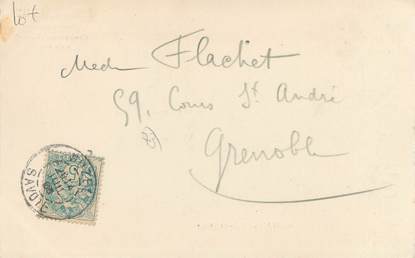 lot
Flachet
59, Cours St. André
Grenoble
SAVOIE